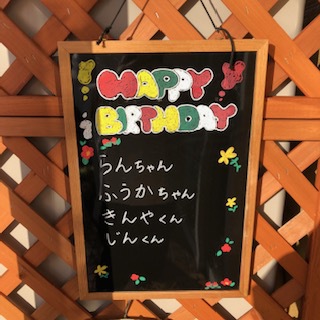 HAPPY
BIRTHDAY
らんちゃん
ふうかちゃん
きんやくん
じんくん